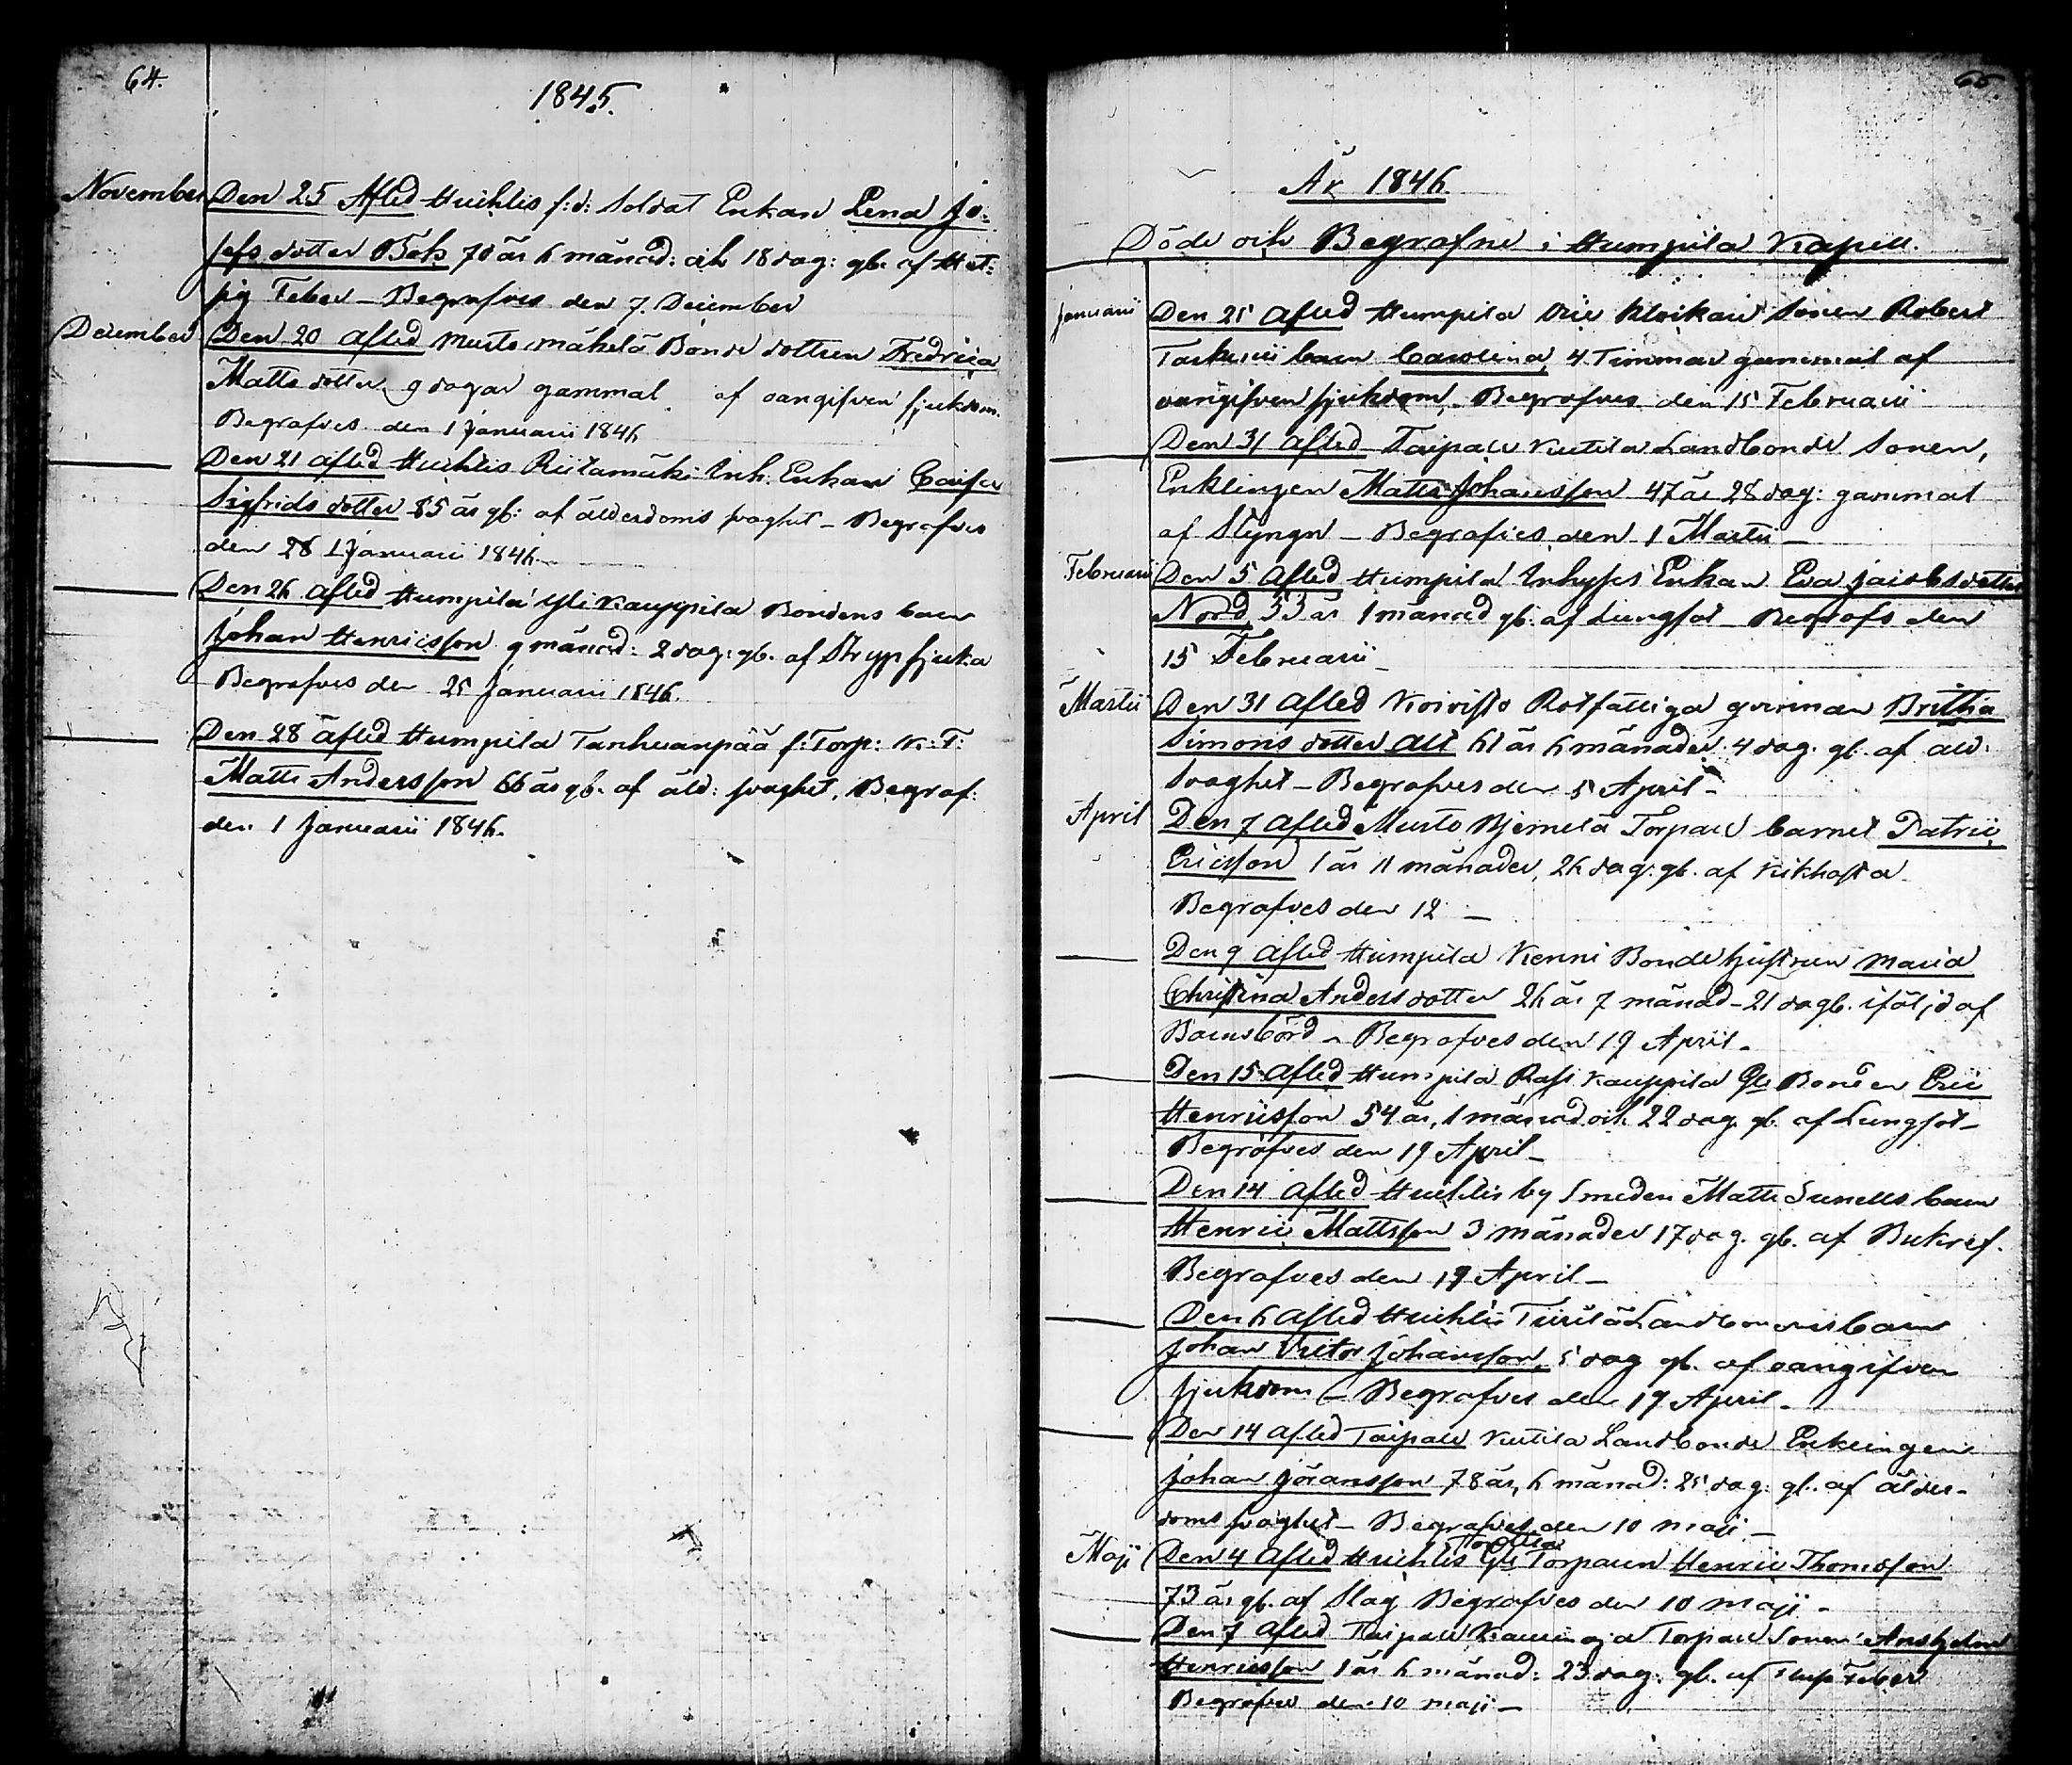 64.
1845.
November Den 25 Afled Huihlis f:d: Soldat Enkan Lena Jo-
sefs dotter Bäk 70 år 6 månad: och 18 dag: gb. af Het-
sig Feber – Begrafves den 7. December
December Den 20 Afled Musto mäkelä Bonde dottren Fredrica
Matts dotter 9 dagar gammal af oangifven sjukdom.
Begrafves den 1 Januarii 1846
Den 21 Afled Huihlis Riitamäki Inh. Enkan Caisa
Sigfrids dotter 85 år gb: af ålderdoms svaghet – Begrafves
den 1 Januarii 1846
Den 26 Afled Humpila Yli Kauppila Bondens barn
Johan Henricsson 9 månad: 2 dag: gb. af Strypsjuka
Begrafves den 25 Januarii 1846.
Den 28 Afled Humpila Tanhuanpää f: Torp:
Matts Andersson 66 år gb. af åld: svaghet, Begraf:
den 1 Januarii 1846.
65.
År 1846
Döde och Begrafne i Humpila Kapell.
Januarii Den 25 Afled Humpila Sonen Robert
barn Carolina 4 Timmar gammal af
oangifven sjukdom – Begrafves den 15 Februarii
Den 31 Afled Taipale Kutila Landbonde Sonen,
Enklingen Matts Johansson 47 år 28 dag: gammal
af Styngn – Begrafves den 1 Martii –
Februarii Den 5 Afled Humpila Inhyses Enkan Eva Jacobsdotter
Nord 53 år 1 månad gb. af Lungsot – Begrafs den
15 Februarii –
Martii Den 31 Afled Koivisto Rotfattiga qvinnan Britha
Simons dotter Alt 61 år 6 månader 4 dag. gb. af åld:
svaghet – Begrafves den 5 April –
April Den 7 Afled Musto Bjernelä Torpare barnet Patric
Ericsson 1 år 11 månader, 26 dag: gb. af Kikhosta
Begrafves den 12 –
Den 9 Afled Humpila Kenni Bonde hustrun Maria
Christina Anders dotter 26 år 7 månad – 21 da gb. i följd af
Barnsbörd – Begrafves den 19 April –
Den 15 Afled Humpila Rasi Kauppila Gla Bonden Eric
Henricsson 54 år, 1 månad och 22 dag gb. af Lungsot –
Begrafves den 19 April –
Den 14 Afled Huihlis by Smeden Matts Sunells barn
Henric Mattsson 3 månader 17 dag. gb. af Bukref.
Begrafves den 19 April –
Den 6 Afled Huihlis Tiurilä Landbondens barn
Johan Victor Johansson, 5 dag gb. af oangifven
sjukdom – Begrafves den 19 April –
Den 14 Afled Taipale Kutila Landbonde Enklingen
Johan Jöransson 78 år, 6 månad: 25 dag: gb. af ålder-
doms svaghet – Begrafves den 10 Maji –
Maji Den 4 Afled Huihlis Gla Torparen Henric Thomasson
73 år gb. af Slag Begrafves den 10 Maji –
Den 7 Afled Taipale Torpare Sonen Anshelm
Henricsson 1 år 6 månad: 23 dag: gb. af Feber
Begrafves den 10 Maji –